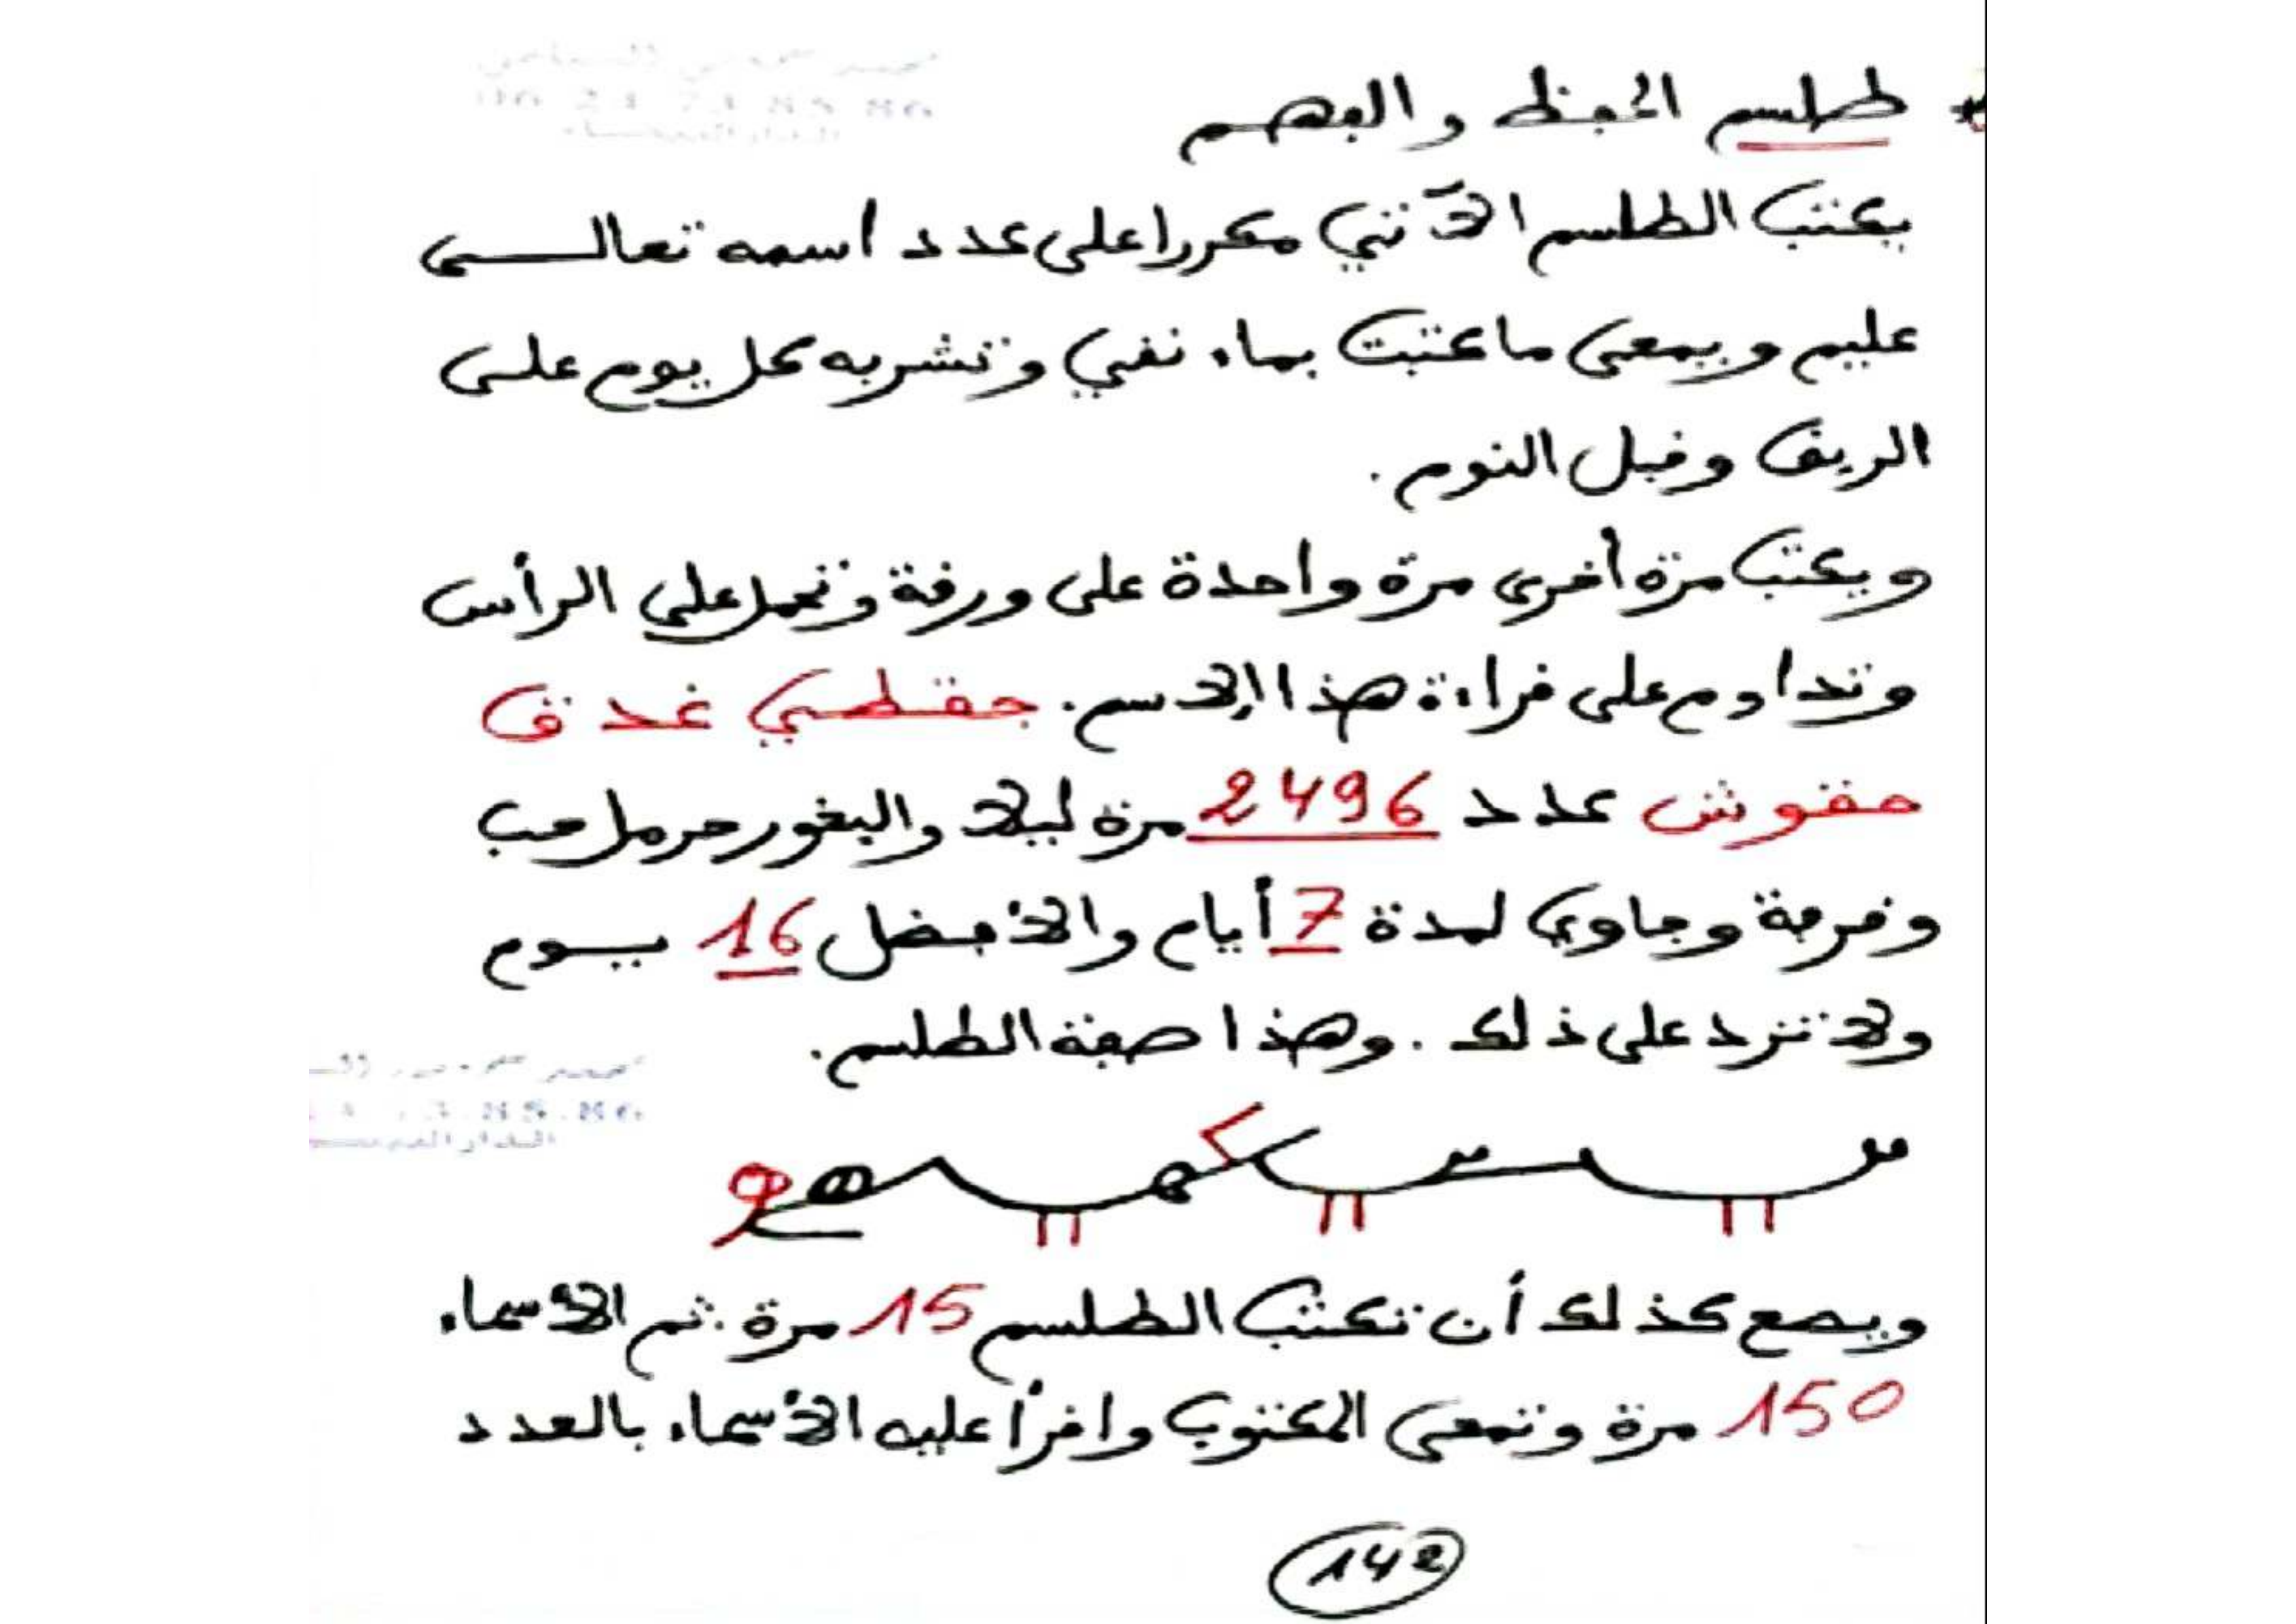 * طلسم الحفظ والفهم
يكتب الطلسم الآتي مكررا على عدد اسمه تعالى
عليم ويمحى ما كتبت بماء نقي وتشربه كل يوم على
الريق وقبل النوم.
ويكتب مرة أخرى مرة واحدة على ورقة وتحمل على الرأس
وتداوم على قراءة هذا الإسم. جقطي غدق
حقوش عدد 2496 مرة ليلا والبخور حرمل حب
وقرفة وجاوي لمدة 7 أيام والأفضل 16 يوم
ولا تزد على ذلك. وهذا صفة الطلسم.
ويصح كذلك أن تكتب الطلسم 15 مرة. ثم الأسماء
150 مرة وتمحى المكتوب واقرأ عليه الأسماء بالعدد
142